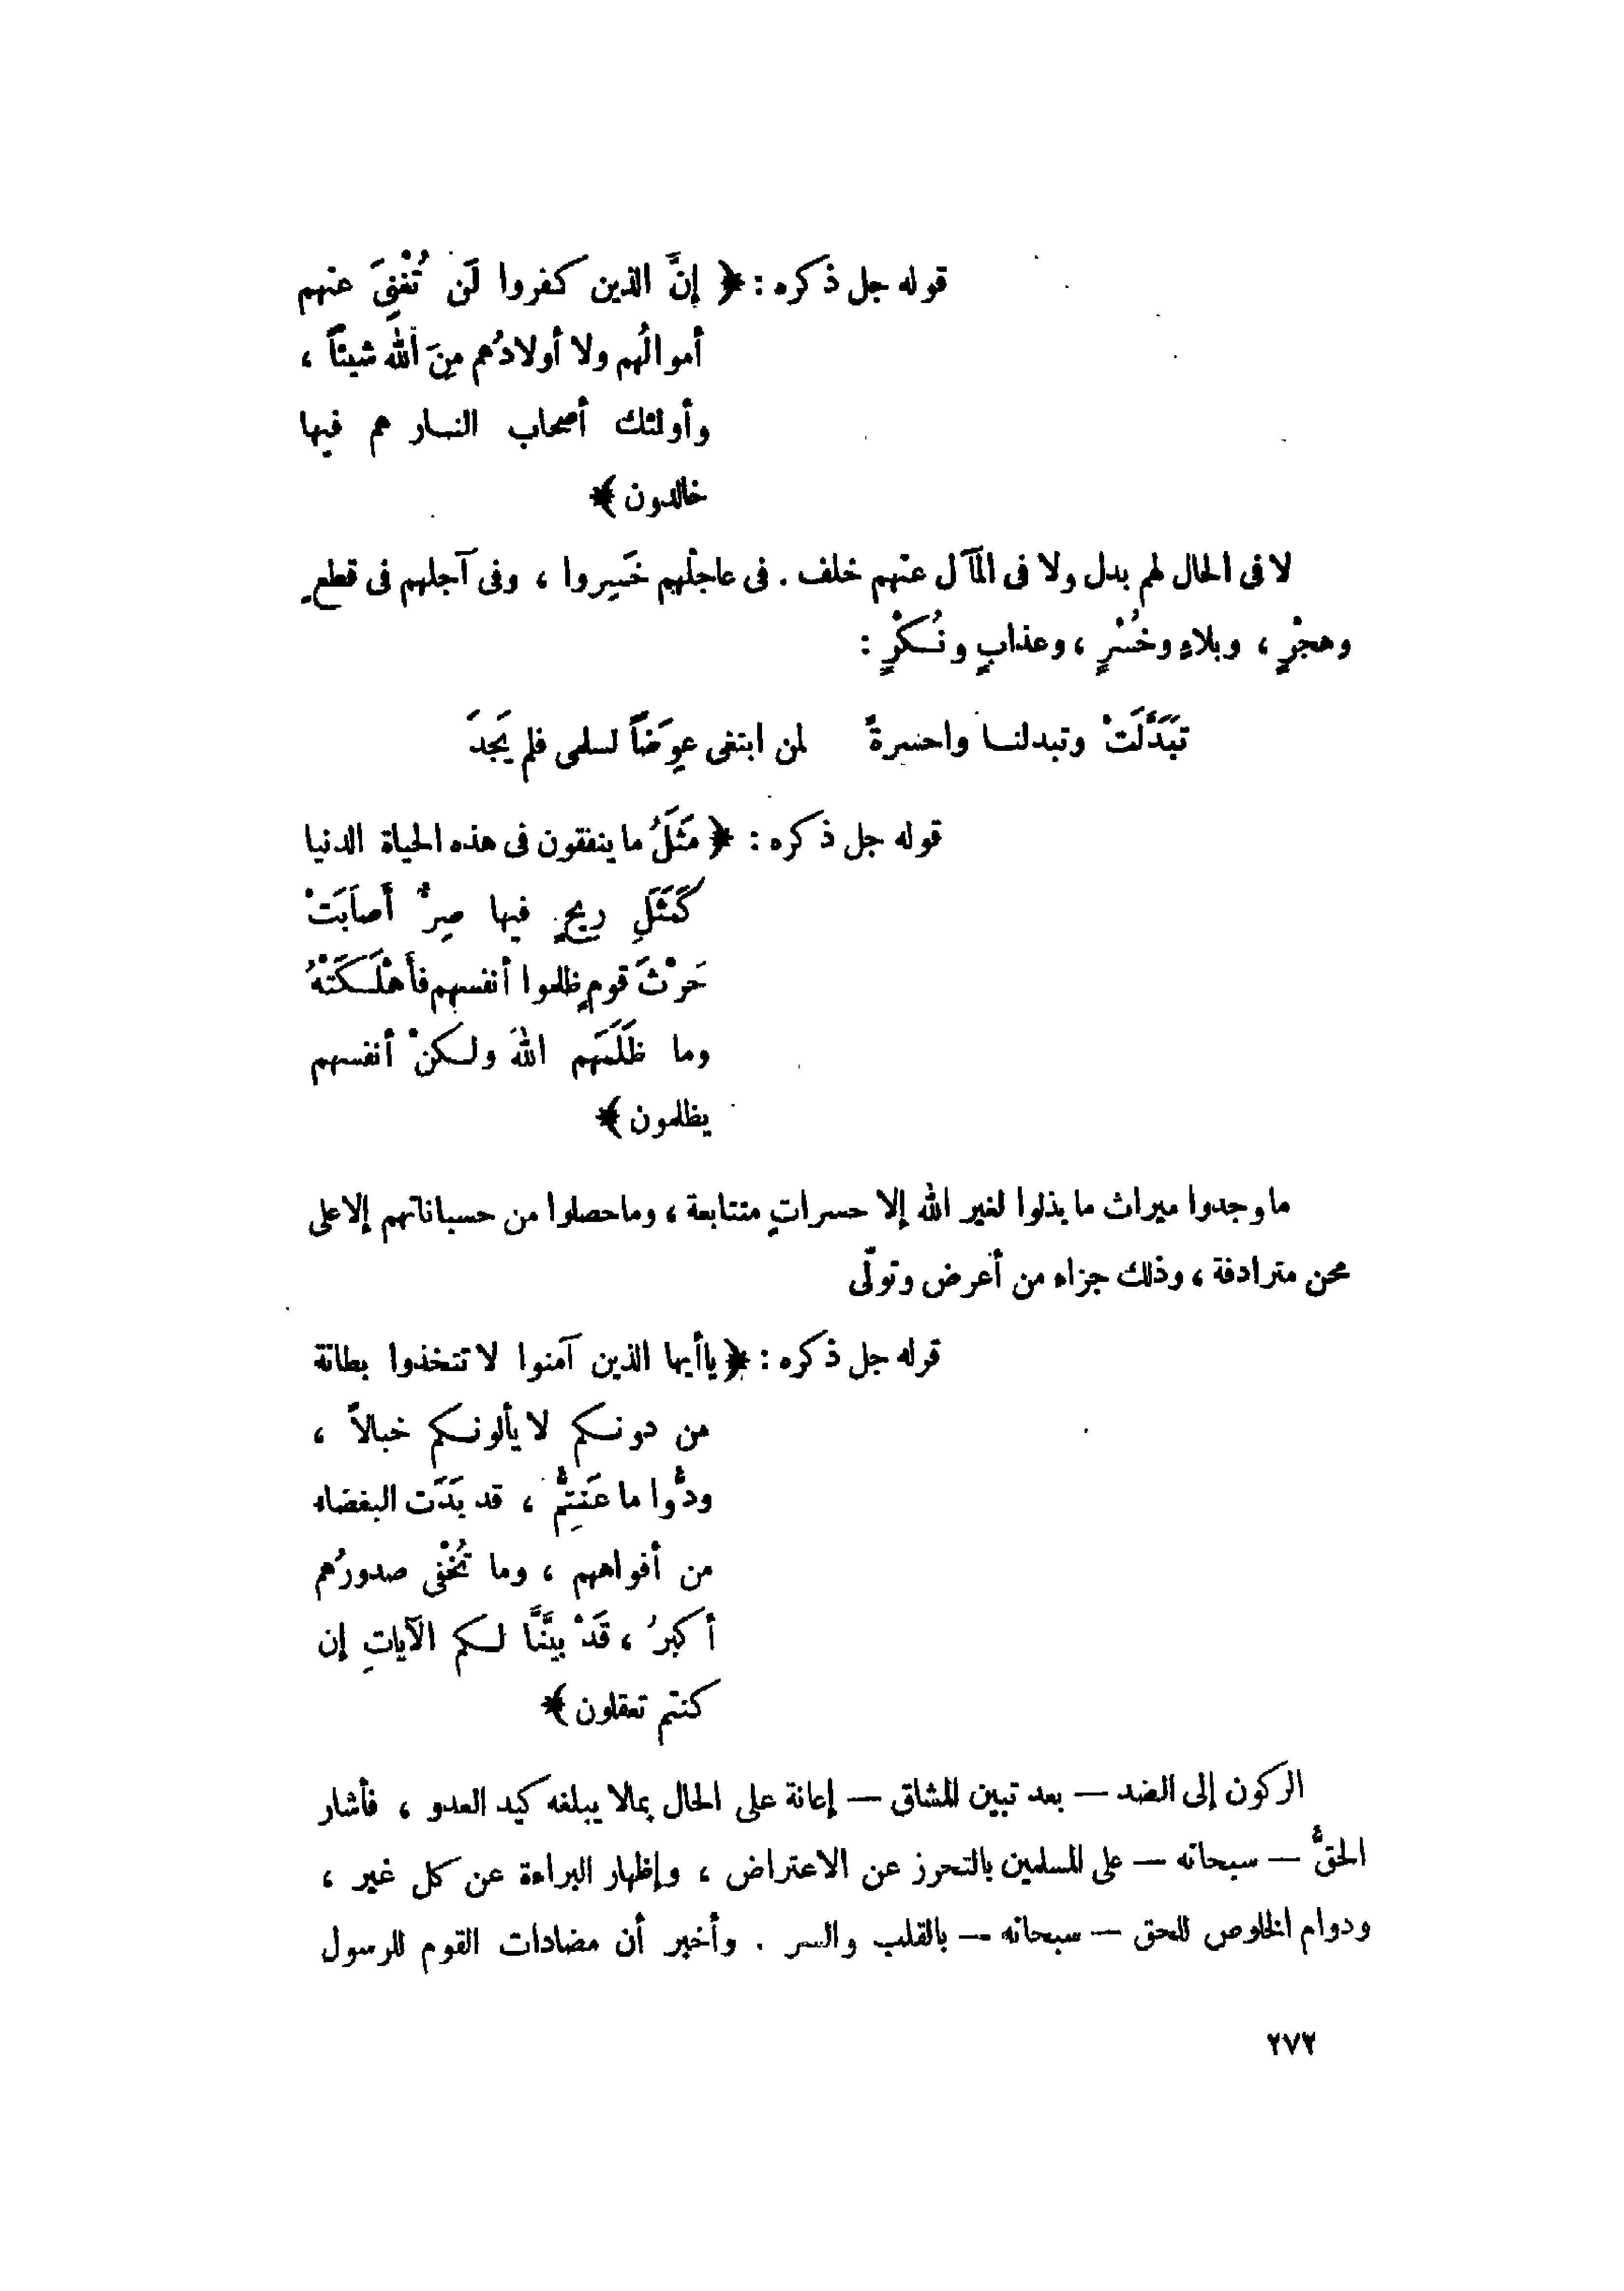 قوله جل ذكره : ﴿ إنَّ الذين كفروا لَن تُغْنِىَ عنهم
أموالُهم ولا أولادُهم مِنَ اللّه شيئاً ،
وأولئك أصحاب النار هم فيها
خالدون ﴾
لا فى الحال لهم بدل ولا فى المآل عنهم خلف . فى عاجلهم خَسِروا ، وفى آجلهم فى قطعٍ
وهجْرٍ ، وبلاءٍ وخُسْرٍ ، وعذابٍ ونُكْرٍ :
تَبَدَّلَتْ وتبدلنا واحسرةً لمن ابتغى عِوَضَاً لسلمى فلم يَجِدَ
قوله جل ذكره : ﴿ مَثَلُ ما ينفقون فى هذه الحياة الدنيا
كَمَثَلِ رِيحٍ فيها صِرٌّ أَصابَتْ
حَرْثَ قومٍ ظلموا أنفسهم فأَهْلَكَتْهُ
وما ظَلَمَهم اللّهَ ولكنْ أنفسهم
يظلمون ﴾
ما وجدوا ميراث ما بذلوا لغير اللّه إلا حسراتٍ متتابعة ، وما حصلوا من حسباناتهم إلا على
محن مترادفة ، وذلك جزاء من أعرض وتولّى
قوله جل ذكره : ﴿ ياأيها الذين آمنوا لا تتخذوا بطانة
من دونكم لا يألونكم خبالاً ،
ودُّوا ما عَنِتُّم ، قد بَدَت البغضاء
من أفواههم ، وما تُخْفِى صدورُهم
أكبرُ ، قَدْ بيَّنَّا لكم الآياتِ إن
كنتم تعقلون ﴾
الركون إلى الضد — بعد تبين المشاق — إعانة على الحال بمالا يبلغه كيد العدو ، فأشار
الحقُّ — سبحانه — على المسلمين بالتحرز عن الاعتراض ، وإظهار البراءة عن كل غير ،
ودوام الخلوص للحق — سبحانه — بالقلب والسر . وأخبر أن مضادات القوم للرسول
٢٧٢